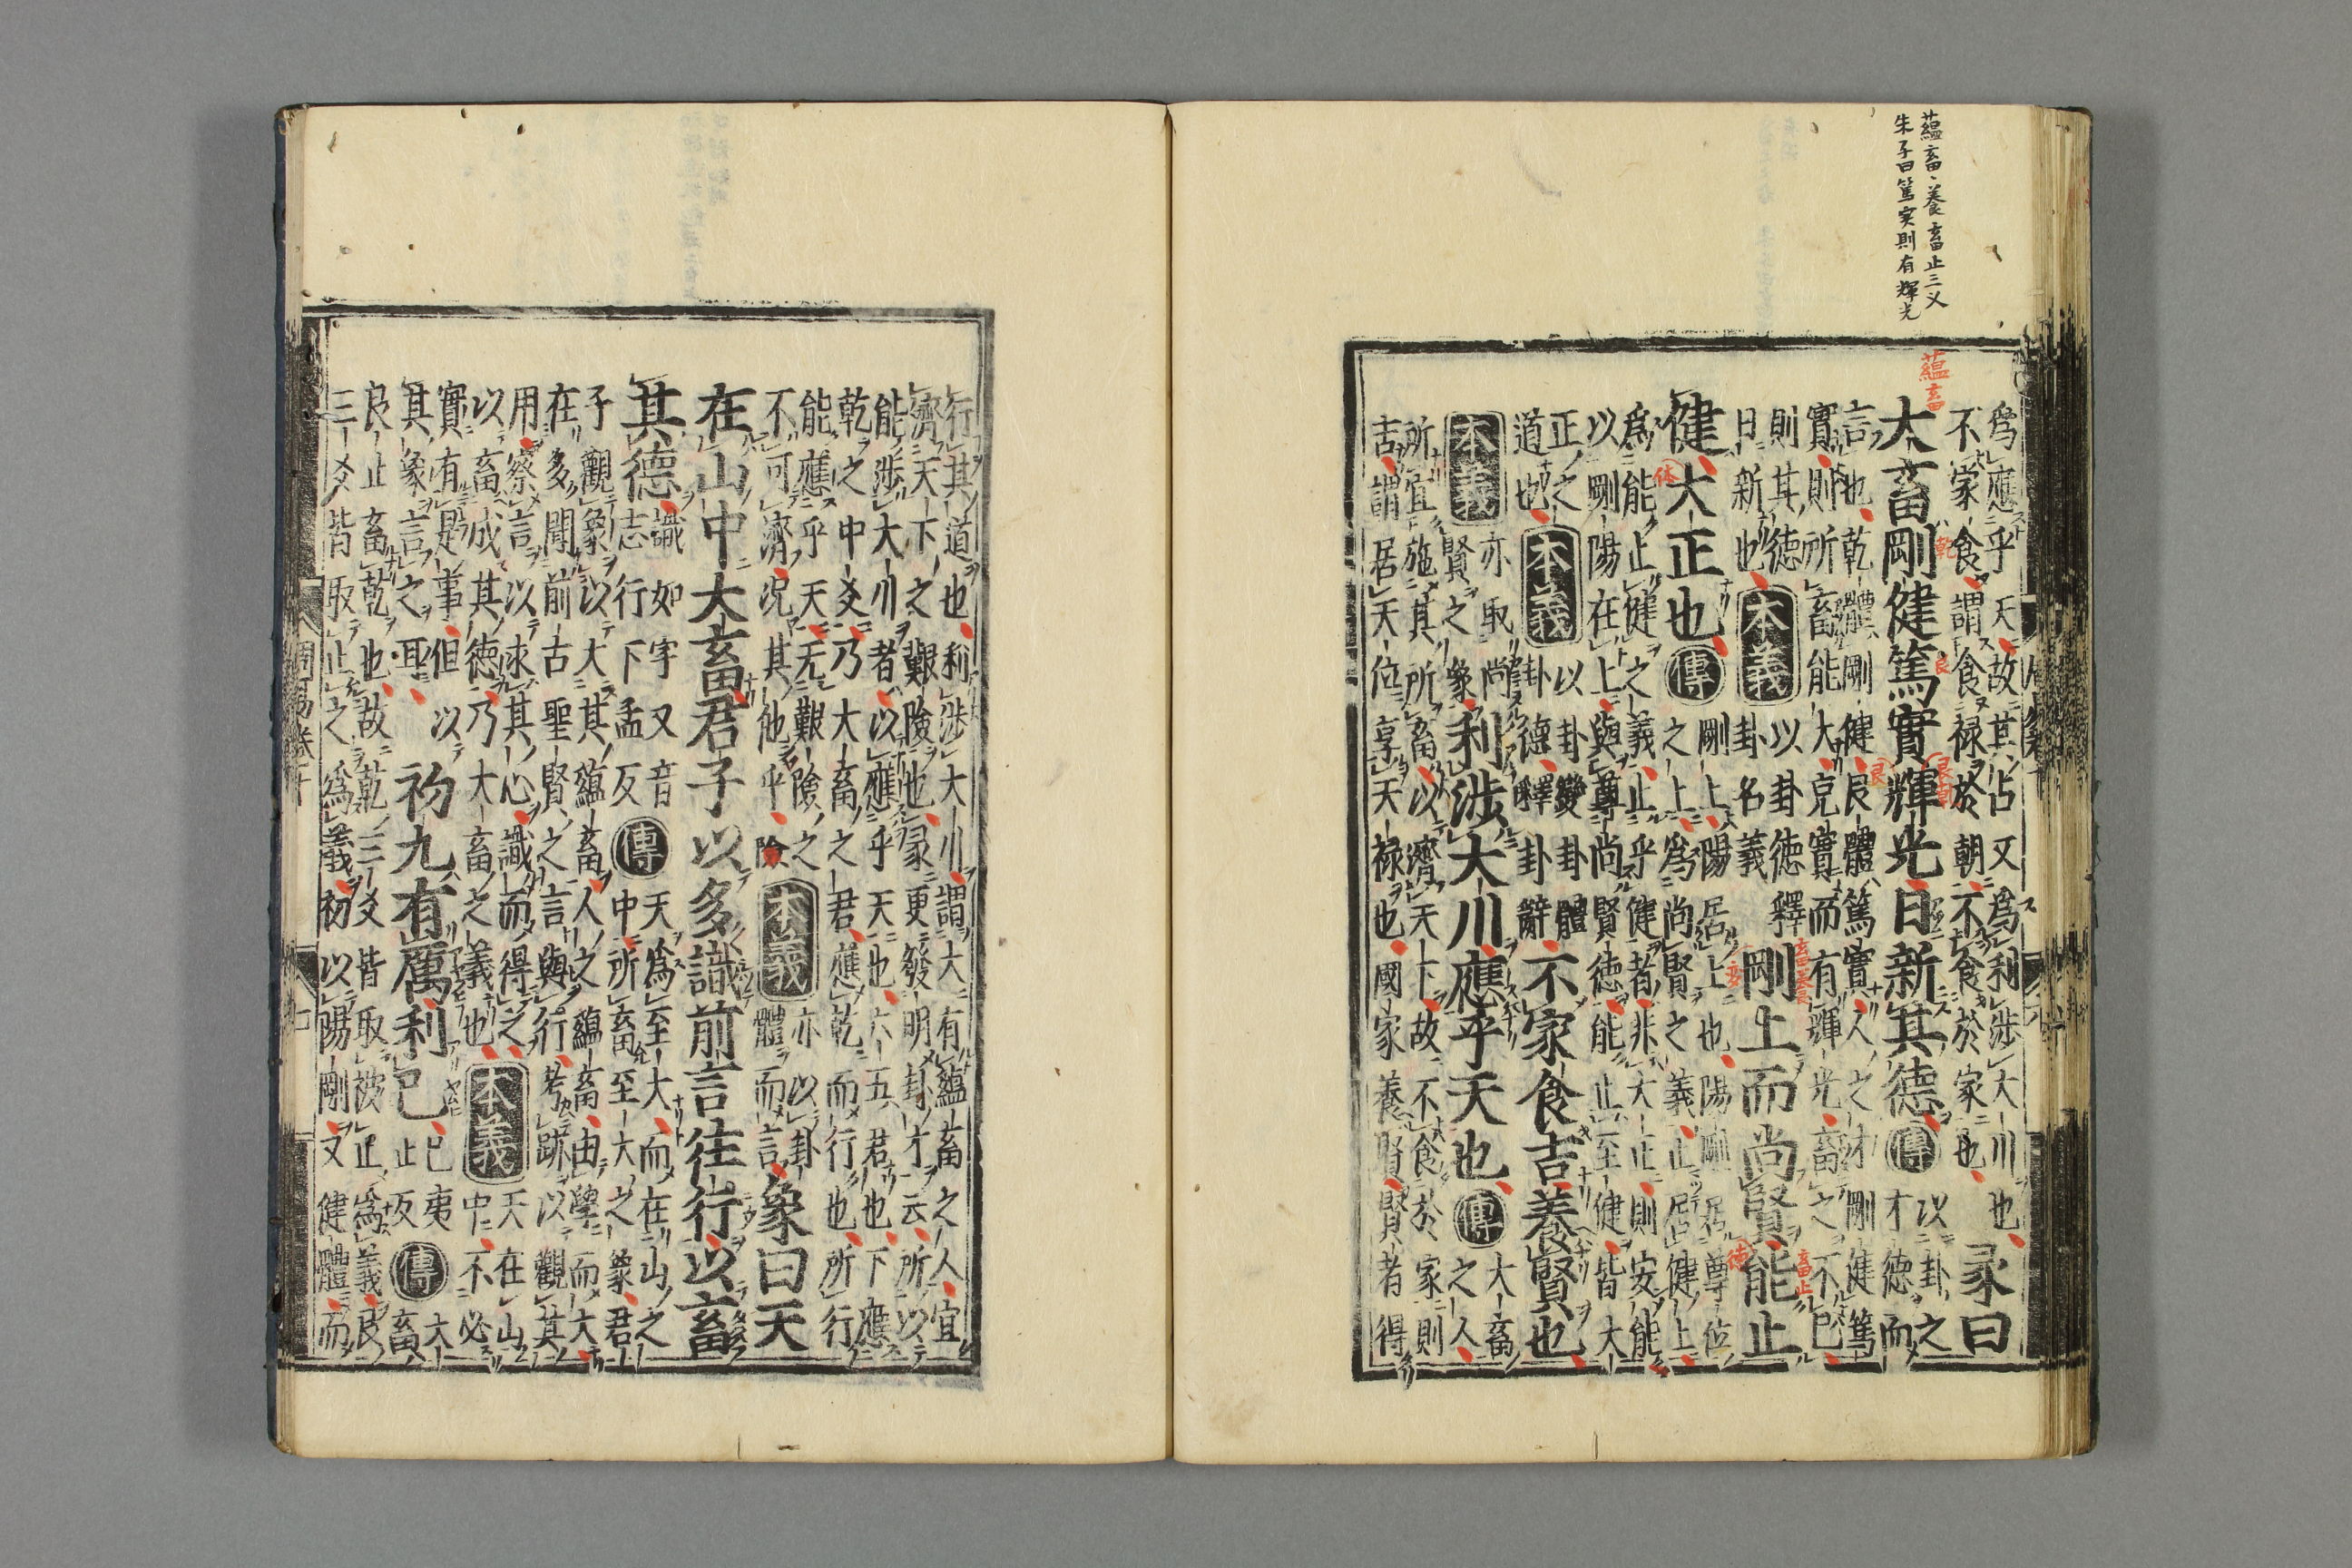 蘊畜、養畜止三义
朱子曰篤実則有輝光
蘊畜
為應乎天故其占又為利渉大川也
不家食謂食禄於朝不食於家也
彖曰
大畜剛健篤實輝光日新其德
傳
以卦之
才德而
言也乾體剛健艮體篤實人之才剛健篤
實則所畜能大充實而有輝光畜之不已
則其徳
日新也
本義
以卦徳釋
卦名義
剛上而尚賢能止
健大正也
傳
剛上陽居上也陽剛居尊位
之上為尚賢之義止居健上
為能止健之義止乎健者非大正則安能
以剛陽在上與尊尚賢徳能止至健皆大
正之
道也
本義
以卦變卦體
卦德釋卦辭
不家食吉養賢也
本義
亦取尚
賢之象
利渉大川應乎天也
傳
大畜
之人
所宜施其所畜以濟天下故不食於家則
吉謂居天位享天禄也國家養賢賢者得
行其道也利渉大川謂大有蘊畜之人宜
濟天下之艱險也彖更發明卦才云所以
能渉大川者以應乎天也六五君也下應
乾之中爻乃大畜之君應乾而行也所行
能應乎天无艱險之
不可濟况其他乎
險
本義
亦以卦
體而言
象曰天
在山中大畜君子以多識前言往行以畜
其德
識如字又音
志行下孟反
傳
天為至大而在山之
中所畜至大之象君
子觀象以大其蘊畜人之蘊畜由學而大
在多聞前古聖賢之言與行考跡以觀其
用察言以求其心識而得之
以畜成其徳乃大畜之義也
本義
天在山
中不必
實有是事但以
其象言之耳
初九有厲利已
已夷
止反
傳
大
畜
艮止畜乾也故乾三爻皆取被止為義艮
三爻皆取止之為義初以陽剛又健體而